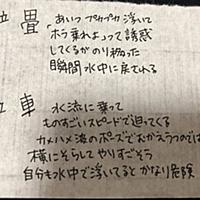 畳
「あいつ プカプカ 浮いて
ホラ乗れよ」って誘惑
してくるがのり移った
瞬間 水中に戻される
車
水流に乗って
ものすごいスピードで迫ってくる
カメハメ波のポーズでむかえうつのでは
横にそらしてやりすごそう
自分も水中で浮いてると かなり危険